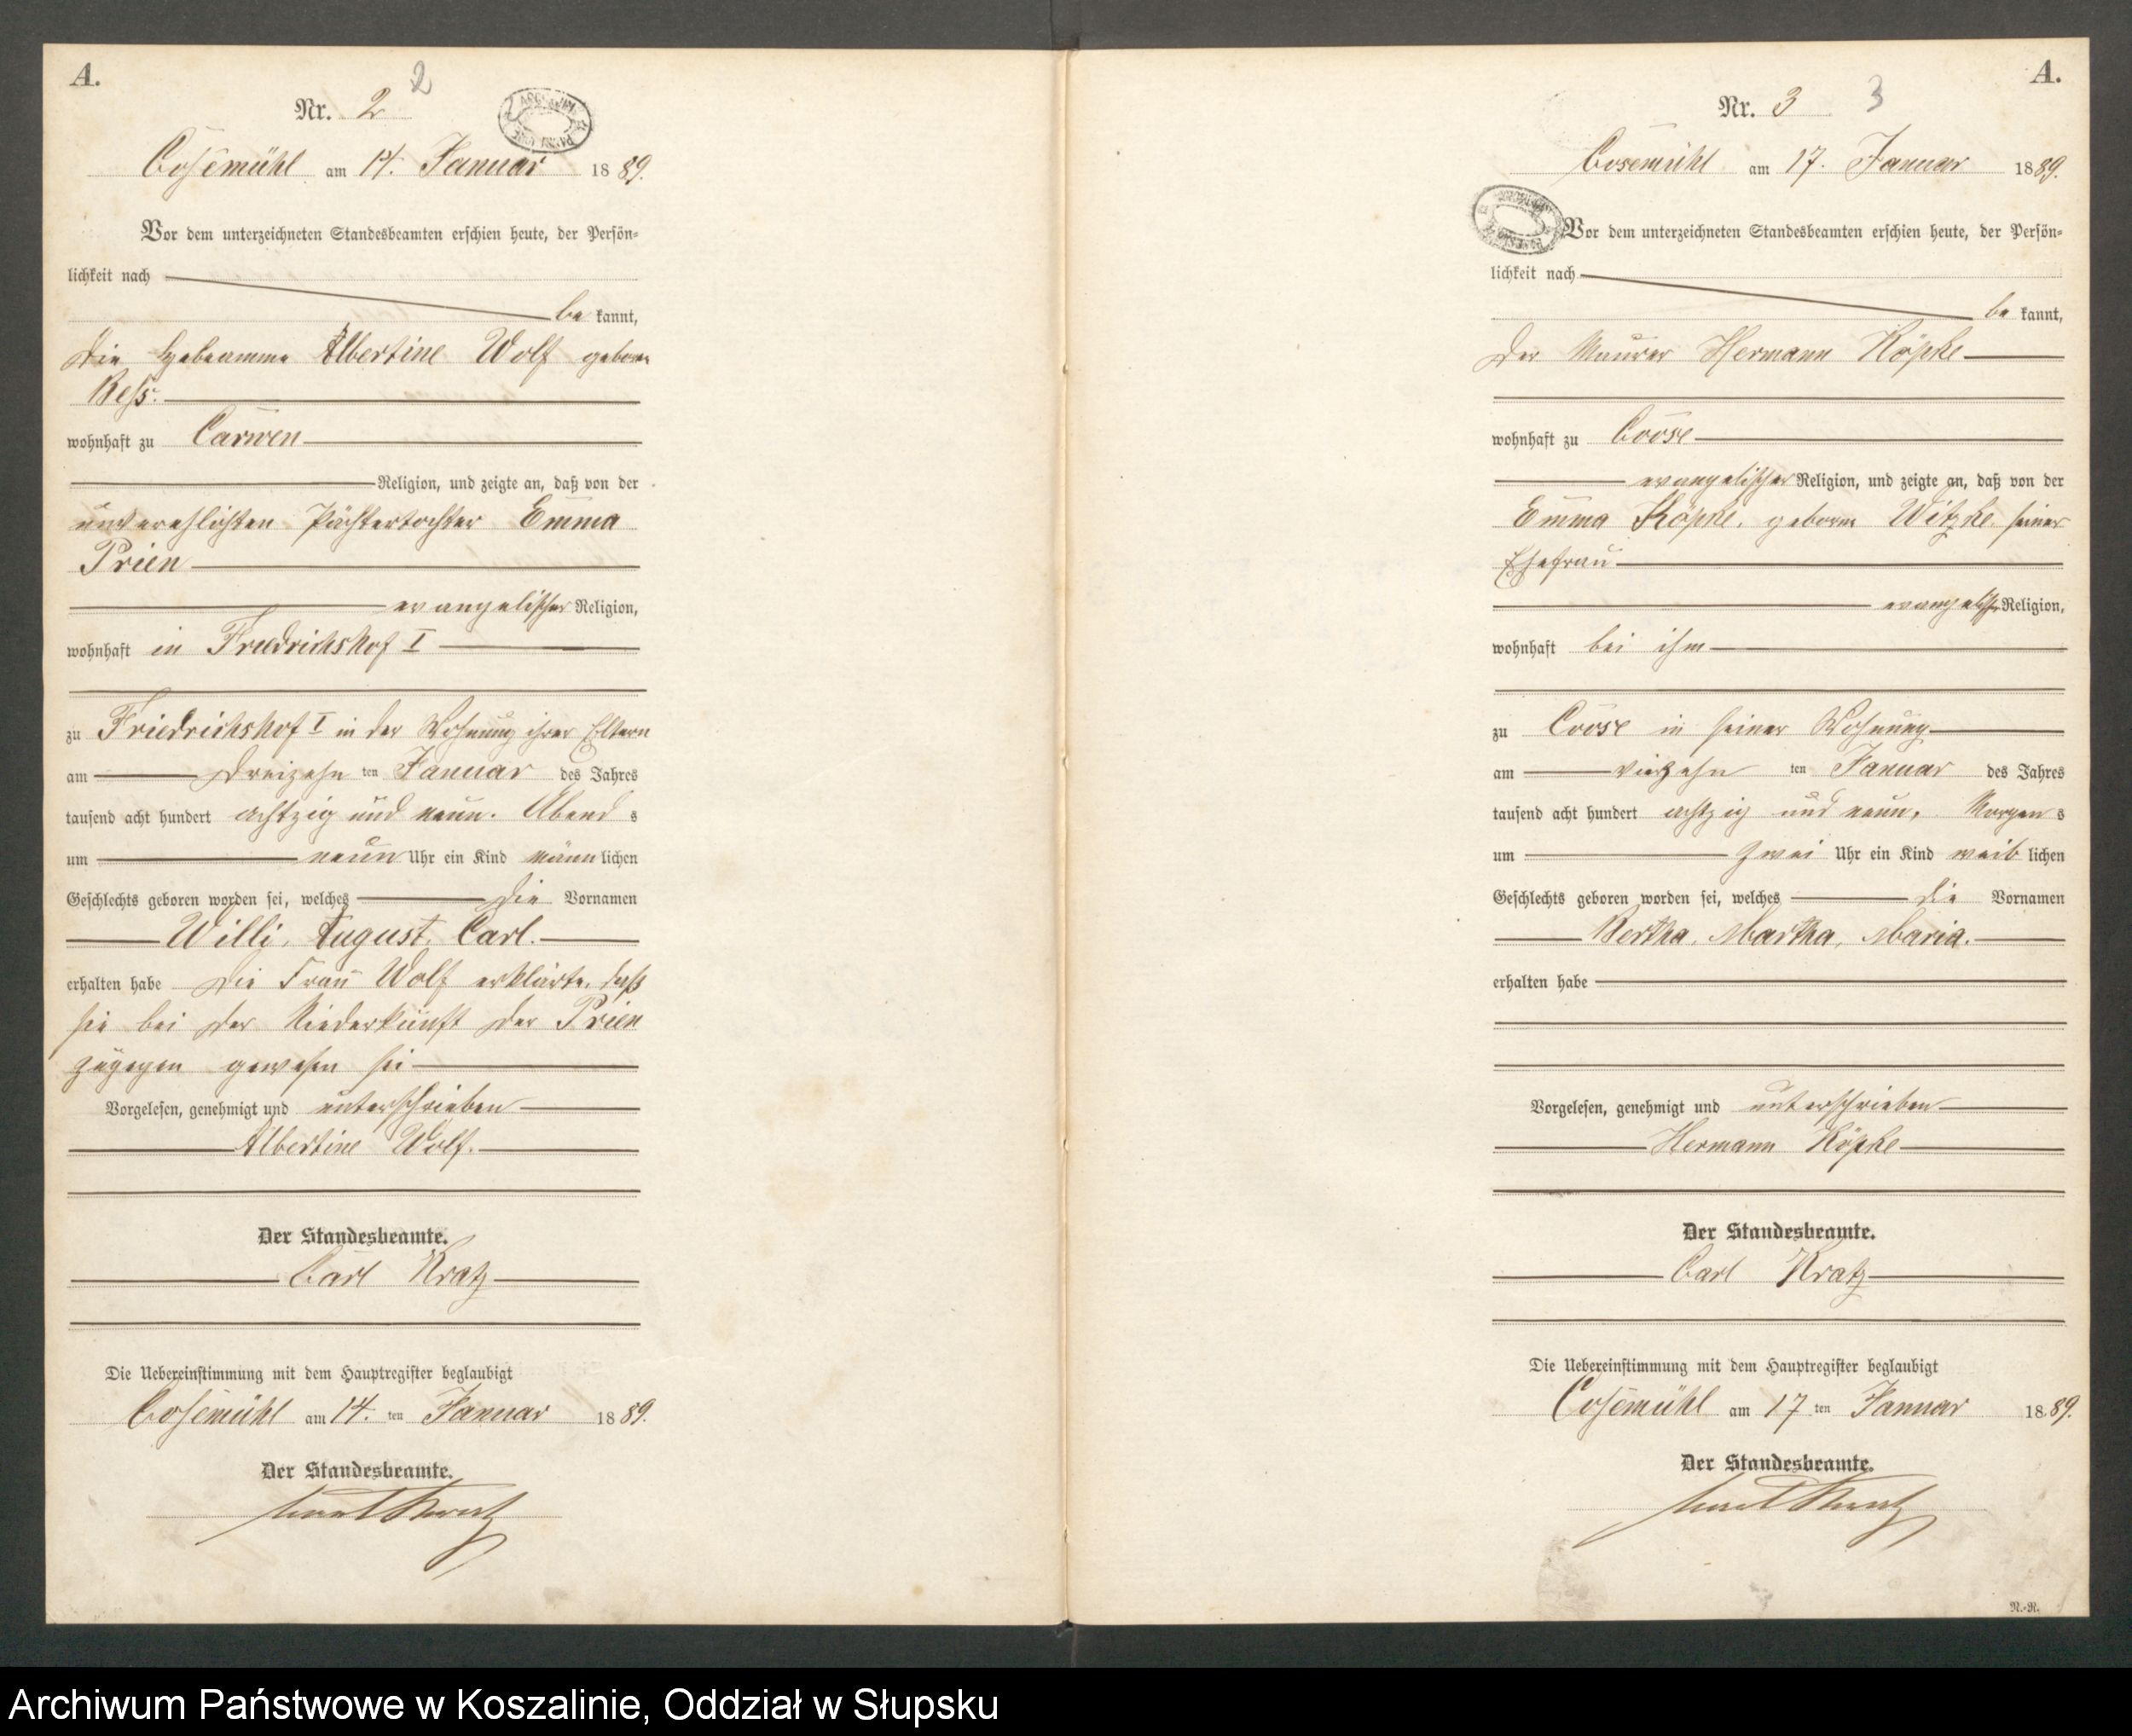 A.
2
Nr. 2
Cosemühl am 14. Januar 1889.
Vor dem unterzeichneten Standesbeamten erschien heute, der Persön-
lichkeit nach
be kannt,
die Hebeamme Albertine Wolf geboren
Ress.
wohnhaft zu Carwen
Religion, und zeigte an, daß von der
unverehlichten Pächtertochter Emma
Prien
evangelischer Religion,
wohnhaft in Friedrichshof I
zu Friedrichshof I in der Wohnung ihrer Eltern
am dreizehn ten Januar des Jahres
tausend acht hundert achtzig und neun. Abend s
um neun Uhr ein Kind männ lichen
Geschlechts geboren worden sei, welches die Vornamen
Willi, August, Carl.
erhalten habe die Frau Wolf erklärte, daß
sie bei der Niederkunft der Prien
zugegen gewesen sei
Vorgelesen, genehmigt und unterschrieben
Albertine Wolf.
Der Standesbeamte.
Carl Kratz
Die Uebereinstimmung mit dem Hauptregister beglaubigt
Cosemühl am 14. ten Januar 1889.
Der Standesbeamte.
Carl Kratz
A.
3
Nr. 3
Cosemühl am 17. Januar 1889.
Vor dem unterzeichneten Standesbeamten erschien heute, der Persön-
lichkeit nach
be kannt,
der Maurer Hermann Köpke
wohnhaft zu Coose
evangelischer Religion, und zeigte an, daß von der
Emma Köpke, geboren Witzke, seiner
Ehefrau
evangelischer Religion,
wohnhaft bei ihm
zu Coose in seiner Wohnung
am vierzehn ten Januar des Jahres
tausend acht hundert achtzig und neun, Morgen s
um zwei Uhr ein Kind weib lichen
Geschlechts geboren worden sei, welches die Vornamen
Bertha, Martha, Maria.
erhalten habe
Vorgelesen, genehmigt und unterschrieben
Hermann Köpke
Der Standesbeamte.
Carl Kratz
Die Uebereinstimmung mit dem Hauptregister beglaubigt
Cosemühl am 17 ten Januar 1889.
Der Standesbeamte.
Carl Kratz
N.-N.
Archiwum Państwowe w Koszalinie, Oddział w Słupsku